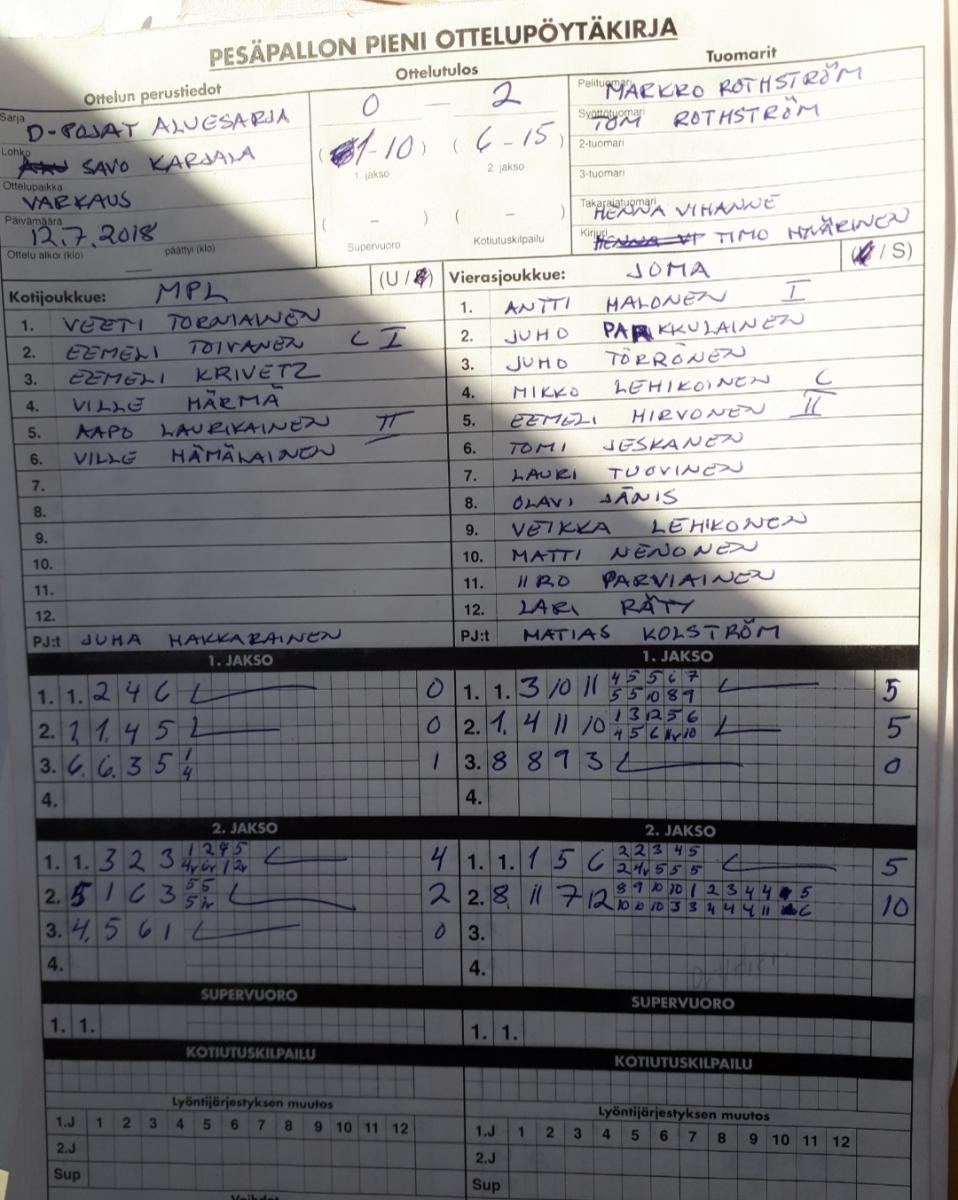 PESÄPALLON PIENI OTTELUPÖYTÄKIRJA
Ottelun perustiedot
Ottelutulos
Tuomarit
Sarja D-POJAT ALUESARJA
Lohko SAVO KARJALA
Ottelupaikka VARKAUS
Päivämäärä 12.7.2018
Ottelu alkoi (klo) päättyi (klo)
0 — 2
(1-10) (6-15)
1. jakso 2. jakso
( - ) ( - )
Supervuoro Kotiutuskilpailu
Pelituomari MARKRO ROTHSTRÖM
Syöttötuomari TOM ROTHSTRÖM
2-tuomari
3-tuomari
Takarajatuomari HENNA VIHANNE
Kirjuri TIMO MÄÄRINEN
Kotijoukkue: MPL (U /
1. VEETI TORNIAINEN
2. EEMELI TOIVANEN C I
3. EEMELI KRIVETZ
4. VILLE HÄRMÄ
5. AAPO LAURIKAINEN II
6. VILLE HÄMÄLAINEN
7.
8.
9.
10.
11.
12.
PJ:t JUHA HAKKARAINEN
Vierasjoukkue: JOMA / S)
1. ANTTI HALONEN I
2. JUHO PARKKULAINEN
3. JUHO TÖRRÖNEN
4. MIKKO LEHIKOINEN C
5. EEMELI HIRVONEN II
6. TOMI JESKANEN
7. LAURI TUOVINEN
8. OLAVI JÄNIS
9. VEIKKA LEHIKONEN
10. MATTI NENONEN
11. IIRO PARVIAINEN
12. LARI RÄTY
PJ:t MATIAS KOLSTRÖM
1. JAKSO
1. 1. 2 4 6 0
2. 1, 1. 4 5 0
3. 6, 6. 3 5 1 4 1
4.
1. JAKSO
1. 1. 3 10 11 4 5 5 6 7
5 5 10 8 9 5
2. 1, 4 11 10 1 3 12 5 6
4 5 6 10 5
3. 8 8 9 3 0
4.
2. JAKSO
1. 1. 3 2 3 1 2 4 5
4
2. 5 1 6 3 5 5
5 2
3. 4, 5 6 1 0
4.
2. JAKSO
1. 1. 1 5 6 2 2 3 4 5
2 4r 5 5 5 5
2. 8, 11 7 12 8 9 10 10 1 2 3 4 4 5
10 10 10 3 3 4 4 4 11 6 10
3.
4.
SUPERVUORO
1. 1.
SUPERVUORO
1. 1.
KOTIUTUSKILPAILU
KOTIUTUSKILPAILU
Lyöntijärjestyksen muutos
1.J 1 2 3 4 5 6 7 8 9 10 11 12
2.J
Sup
Lyöntijärjestyksen muutos
1.J 1 2 3 4 5 6 7 8 9 10 11 12
2.J
Sup